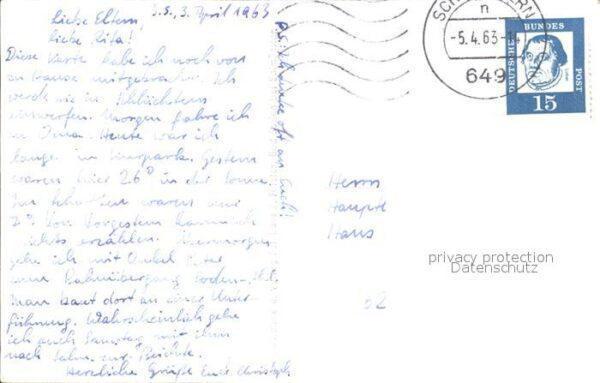 S.S., 3. April 1963
Liebe Eltern,
liebe Rita!
Diese Karte habe ich noch von
zu Hause mitgebracht. Ich
werde sie in Schlüchtern
einwerfen. Morgen fahre ich
zu Oma. Heute war ich
lange im Kurpark. Gestern
waren hier 26° in der Sonne.
Im Schatten waren nur
7°. Von Vorgestern kann ich
nichts erzählen. Übermorgen
gehe ich mit Onkel Peter
zum Bahnübergang
man baut dort an einer Unter-
führung. Wahrscheinlich gehe
ich auch Samstag mit ihm
nach Salm. zur Beichte.
Herzliche Grüße Euer Christoph
P.S. Ich denke oft an Euch!
-5.4.63-14
649
DEUTSCHE BUNDES POST
15
Herrn
Hans
privacy protection
Datenschutz